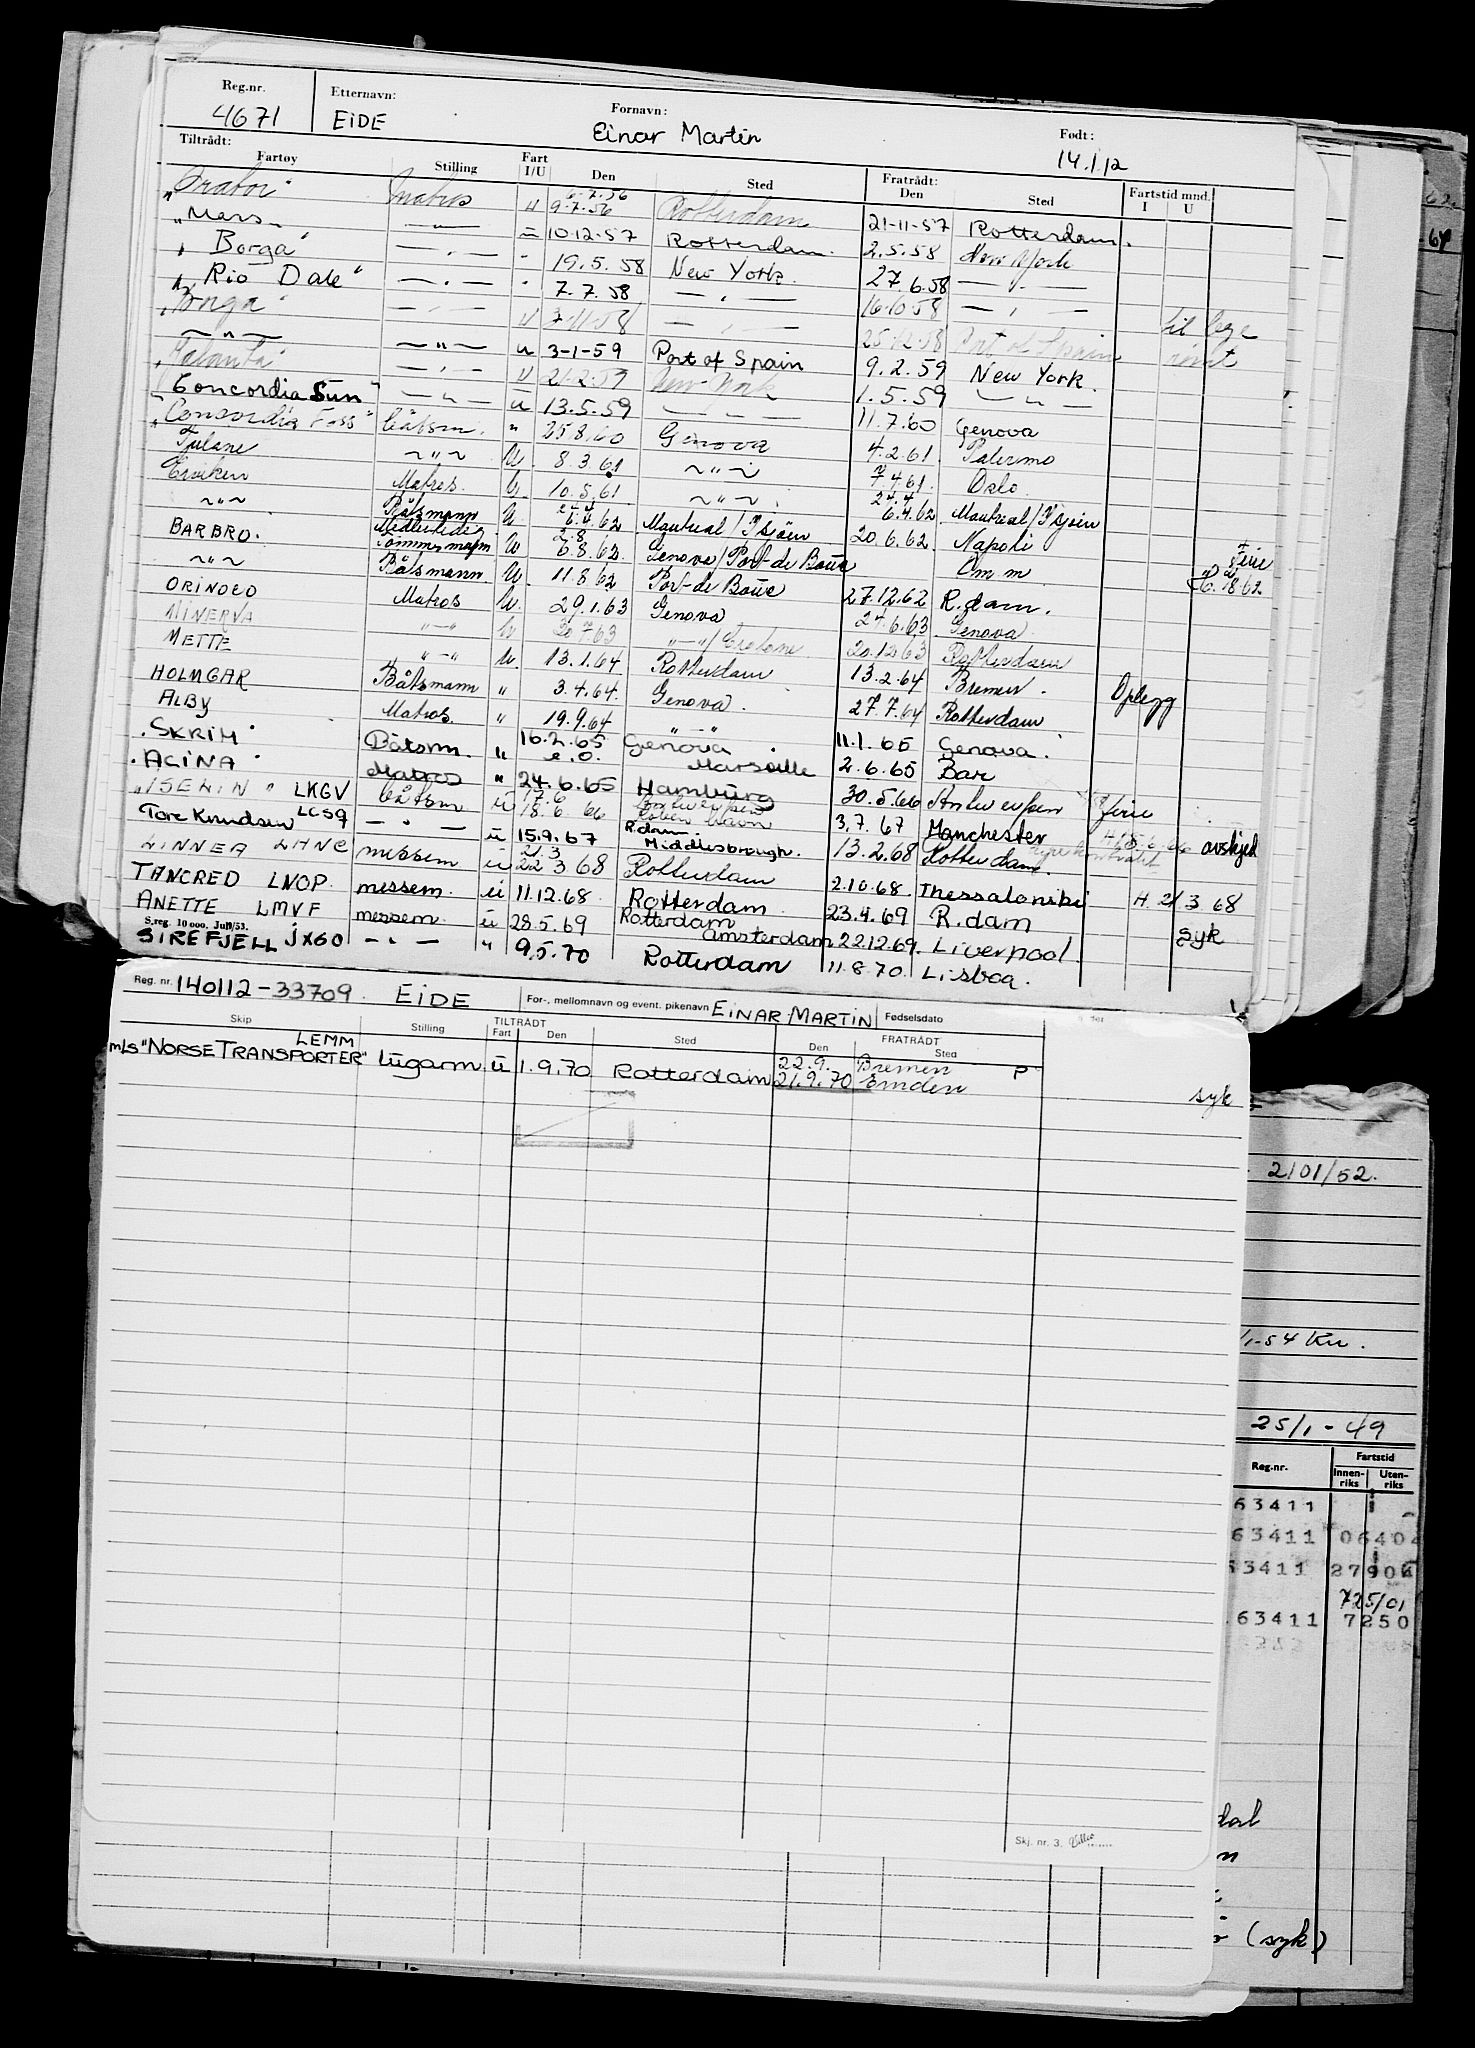 Reg.nr. 4671 Etternavn: EIDE Fornavn: Einar Martin Født: 14.1.12
Tiltrådt: Fratrådt:
Fartøy Stilling Fart I/U Den Sted Den Sted Fartstid mnd. I U
6.7.56
Matros u 9.7.56 Rotterdam 21-11-57 Rotterdam.
"Mars — " — ü 10.12.57 Rotterdam. 2.5.58 New York
" Borga" — " — " 19.5.58 New York. 27.6.58 — " —
" Rio Dale" — " — " 7.7.58 — " — 16.10.58 — " —
"Borga" — " — u 7-11-58 — " — 25.12.58 Port of Spain til lege
— " — — " — u 3-1-59 Port of Spain 9.2.59 New York.
— " — u 21.2.59 New York 1.5.59 — " —
"Concordia Sun" — " — ü 13.5.59 — " — 11.7.60 Genova
"Concordia Foss" båtsm. " 25.8.60 Genova 4.2.61 Palermo
Tulane ~ " ~ U. 8.3.61 ~ " ~ 7.4.61. Oslo
Matros. U. 10.5.61 ~ " ~ 24.4
~ " ~ Båtsmann U. 6.4.62 Montreal / 6.4.62 Montreal /
BARBRO. Tømmermann U 6.8.62. Genova / Port-de Bouc 20.6.62. Napoli
~ " ~ Båtsmann U. 11.8.62 Port-de Bouc Om m Ferie
ORINOCO Matros U. 29.1.63 Genova 27.12.62 R.dam.
MINERVA " — " U 20.7.63 24.6.63 Genova
METTE " — " U. 13.1.64 Rotterdam 20.12.63 Rotterdam
HOLMGAR Båtsmann " 3.4.64. Genova. 13.2.64 Bremen. Oplegg
ALBY Matros. " 19.9.64 " — " 27.7.64 Rotterdam
"SKRIM" Båtsm. " 16.2.65 Genova. 11.1.65 Genova.
e.o. Marseille
"AGINA" Matros " 24.6.65 Hamburg 2.6.65 Bar
"ISELIN" LKGV båtsm ü 17.6
18.6 66 Antwerpen
København 30.5.66 Antwerpen ferie
Tore Knudsen LCSQ — " — ü 15.9.67 R.dam
Middlesbrough. 3.7.67 Manchester avskjed
LINNEA LHNC messem ü 21.3
22 3 68 Rotterdam 13.2.68 Rotterdam.
TANCRED LNOP. messem. ü 11.12.68. Rotterdam 2.10.68 Thessaloniki H 21 3 68
ANETTE LMVF messem. ü 28.5.69 Rotterdam
Amsterdam 23.4.69 R.dam
S.reg. 10 000. Juli/53.
SIREFJELL JXGO — " — " 9.5.70 Rotterdam 22.12.69. Liverpool. syk
11.8.70. Lisboa.
Reg. nr. 140112-33709. EIDE For-, mellomnavn og event. pikenavn EINAR MARTIN Fødselsdato
TILTRÅDT FRATRÅDT
Skip Stilling Fart Den Sted Den Sted
LEMM
m/s "NORSE TRANSPORTER" lugarm. ü 1.9.70 Rotterdam 22.9. Bremen P
21.9.70 Emden
syk
Skj. nr. 3.
2101/52.
1/1-54 Kr.
25/1-49
Reg.nr. Fartstid
Innen-riks Uten-riks
63411
63411 0640
3411 2790
725/01
63411 7250
(syk)